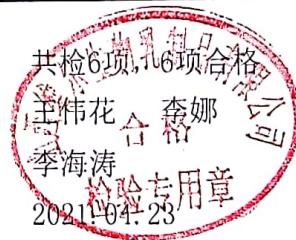 共检6项，6项合格
王伟花 李娜
李海涛
2021.04.23
乳制品有限公司
合格
检验专用章